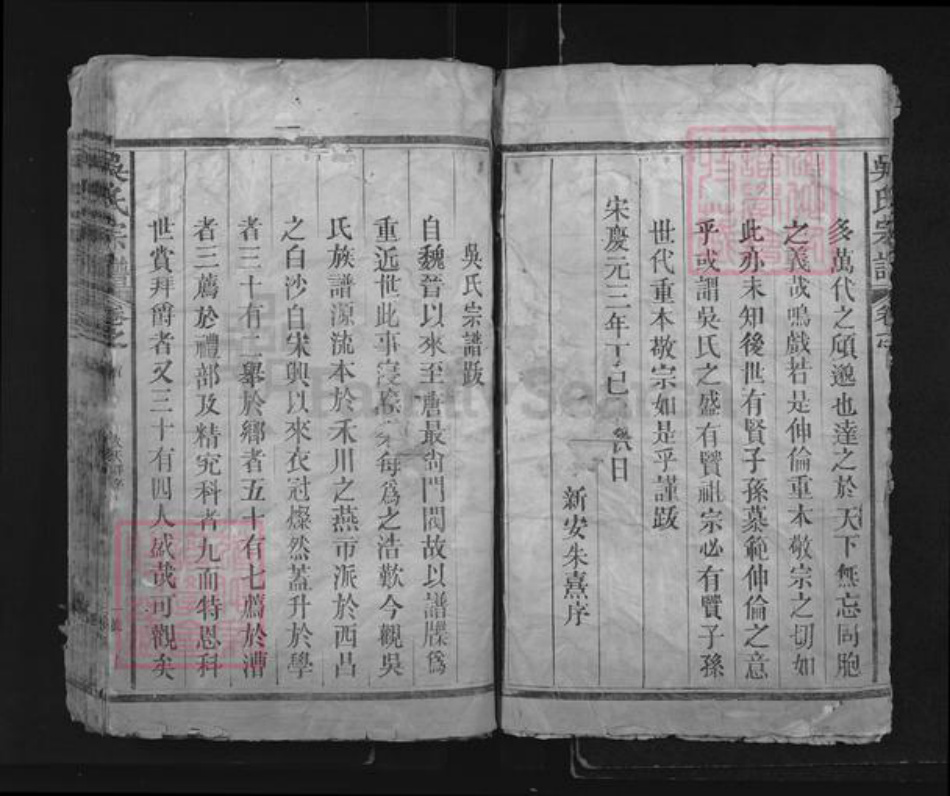 吳氏宗譜 卷之
多萬代之頎邈也達之於天下無忘同胞
之義哉嗚戲若是伸倫重本敬宗之切如
此亦未知後世有賢子孫慕範伸倫之意
乎或謂吳氏之盛有賢祖宗必有賢子孫
世代重本敬宗如是乎謹跋
宋慶元三年丁巳 日
新安朱熹序
吳氏宗譜跋
自魏晉以來至唐最尙門閥故以譜牒爲
重近世此事寖 每爲之浩歎今觀吳
氏族譜源流本於禾川之燕市派於西昌
之白沙自宋興以來衣冠燦然蓋升於學
者三十有二舉於鄉者五十有七薦於漕
者三薦於禮部及精究科者九而特恩科
世賞拜爵者又三十有四人盛哉可觀矣
吳氏宗譜 卷之
FamilySearch